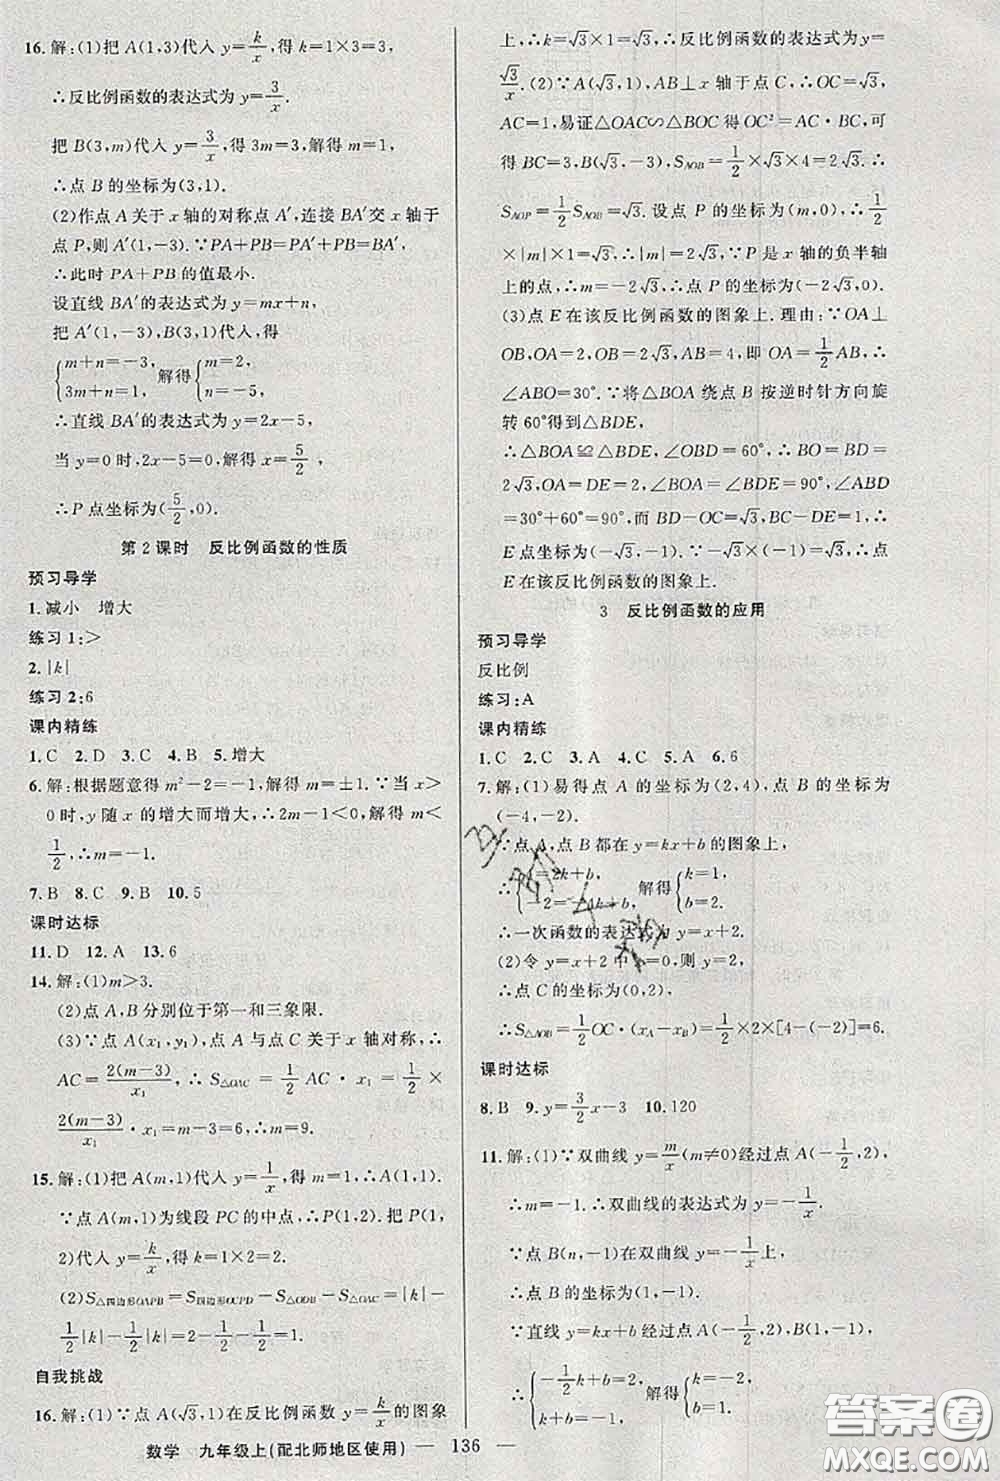 16.解:(1)把 A(1,3)代入 y=k/x,得 k=1×3=3,
∴反比例函数的表达式为 y=3/x.
把 B(3,m)代入 y=3/x,得 3m=3,解得 m=1,
∴点 B 的坐标为(3,1).
(2)作点 A 关于 x 轴的对称点 A′,连接 BA′交 x 轴于
点 P,则 A′(1,-3).∵PA+PB=PA′+PB=BA′,
∴此时 PA+PB 的值最小.
设直线 BA′的表达式为 y=mx+n,
把 A′(1,-3),B(3,1)代入,得
{m+n=-3, 3m+n=1, 解得{m=2, n=-5.
∴直线 BA′的表达式为 y=2x-5,
当 y=0 时,2x-5=0,解得 x=5/2,
∴P 点坐标为(5/2,0).
第 2 课时 反比例函数的性质
预习导学
1.减小 增大
练习 1:>
2.|k|
练习 2:6
课内精练
1.C 2.D 3.C 4.B 5.增大
6.解:根据题意得 m²-2=-1,解得 m=±1.∵当 x>
0 时,y 随 x 的增大而增大,∴2m-1<0,解得 m<
1/2,∴m=-1.
7.B 8.C 9.B 10.5
课时达标
11.D 12.A 13.6
14.解:(1)m>3.
(2)点 A,B 分别位于第一和三象限.
(3)∵点 A(x₁,y₁),点 A 与点 C 关于 x 轴对称,∴
AC=2(m-3)/x₁,∴S△OAC=1/2 AC·x₁=1/2×
2(m-3)/x₁·x₁=m-3=6,∴m=9.
15.解:(1)把 A(m,1)代入 y=1/x,得 m=1,∴A(1,1).
∵点 A(m,1)为线段 PC 的中点,∴P(1,2).把 P(1,
2)代入 y=k/x,得 k=1×2=2.
(2)S△四边形OAPB=S四边形OCPD-S△ODB-S△OAC=|k|-
1/2|k|-1/2|k|=2-1/2-1/2=1.
自我挑战
16.解:(1)∵点 A(√3,1)在反比例函数 y=k/x 的图象
上,∴k=√3×1=√3,∴反比例函数的表达式为 y=
√3/x.(2)∵A(√3,1),AB⊥x 轴于点 C,∴OC=√3,
AC=1,易证△OAC∽△BOC 得 OC²=AC·BC,可
得 BC=3,B(√3,-3),S△AOB=1/2×√3×4=2√3.∴
S△AOP=1/2S△AOB=√3.设点 P 的坐标为(m,0),∴1/2
×|m|×1=√3,∴|m|=2√3.∵P 是 x 轴的负半轴
上的点,∴m=-2√3,∴点 P 的坐标为(-2√3,0).
(3)点 E 在该反比例函数的图象上.理由:∵OA⊥
OB,OA=2,OB=2√3,AB=4,即 OA=1/2AB,∴
∠ABO=30°.∵将△BOA 绕点 B 按逆时针方向旋
转 60°得到△BDE,
∴△BOA≌△BDE,∠OBD=60°,∴BO=BD=
2√3,OA=DE=2,∠BOA=∠BDE=90°,∠ABD=
30°+60°=90°,而 BD-OC=√3,BC-DE=1,∴
E 点坐标为(-√3,-1).∵-√3×(-1)=√3,∴点
E 在该反比例函数的图象上.
3 反比例函数的应用
预习导学
反比例
练习:A
课内精练
1.C 2.C 3.A 4.C 5.A 6.6
7.解:(1)易得点 A 的坐标为(2,4),点 B 的坐标为
(-4,-2).
∵点 A,点 B 都在 y=kx+b 的图象上,
∴{4=2k+b, -2=-4k+b, 解得{k=1, b=2.
∴一次函数的表达式为 y=x+2.
(2)令 y=x+2 中 x=0,则 y=2,
∴点 C 的坐标为(0,2),
∴S△AOB=1/2OC·(xA-xB)=1/2×2×[4-(-2)]=6.
课时达标
8.B 9.y=3/2x-3 10.120
11.解:(1)∵双曲线 y=m/x(m≠0)经过点 A(-1/2,2),
∴m=-1.∴双曲线的表达式为 y=-1/x.
∵点 B(n,-1)在双曲线 y=-1/x上,
∴点 B 的坐标为(1,-1).
∵直线 y=kx+b 经过点 A(-1/2,2),B(1,-1),
∴{-1/2k+b=2, k+b=-1, 解得{k=-2, b=1.
数学 九年级上(配北师地区使用) — 136 —
答案圈
MXQE.COM